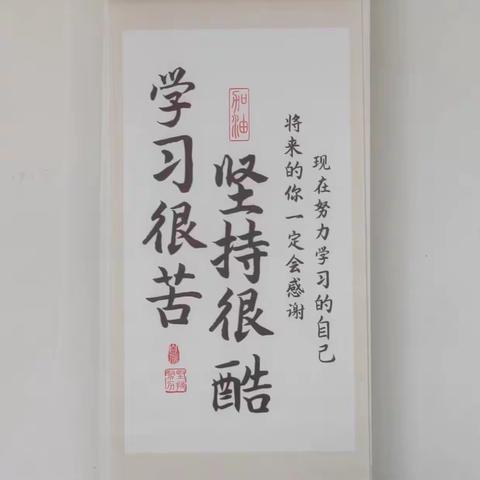 学习很苦
加油
坚持很酷
将来的你一定会感谢
现在努力学习的自己